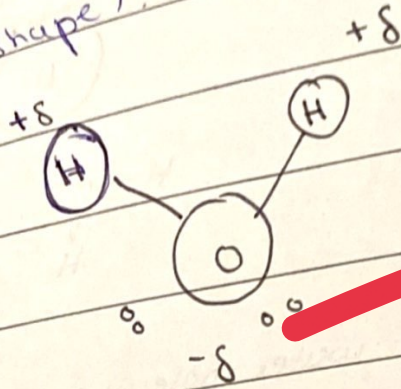 shape,
+δ
+δ
H
H
O
-δ